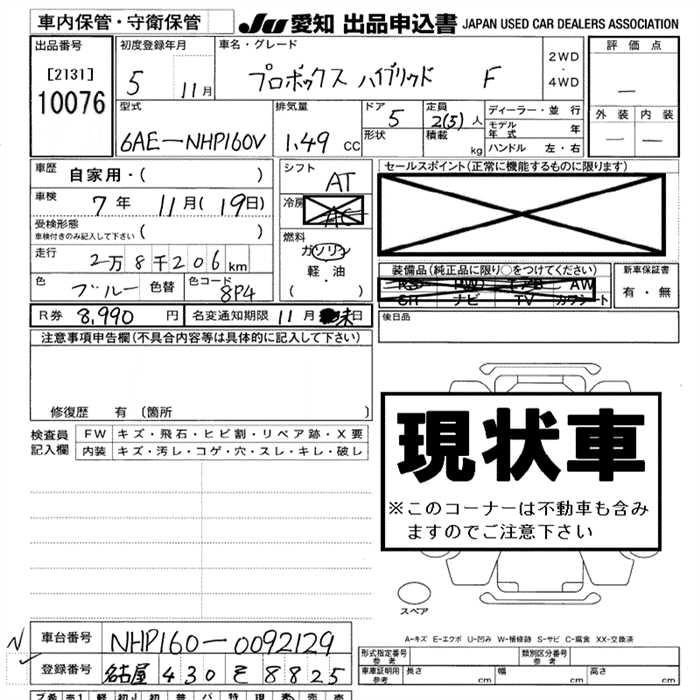 車内保管・守衛保管
JU 愛知 出品申込書 JAPAN USED CAR DEALERS ASSOCIATION
出品番号
[2131]
10076
初度登録年月
5 11月
車名・グレード
プロボックス ハイブリッド F
2WD
・
4WD
評価点
—
外装 内装
— —
型式
6AE-NHP160V
排気量
1.49 cc
ドア
5
形状
定員
2(5)人
積載
kg
ディーラー・並行
モデル年式 年
ハンドル 左・右
車歴
自家用・( )
車検
7年 11月(19日)
受検形態
車検付きのみ記入して下さい ( )
走行
2万8千206km
色
ブルー
色替
色コード
8P4
シフト
AT
冷房
AC
燃料
ガソリン
軽・油
( ・ )
セールスポイント(正常に機能するものに限ります)
装備品(純正品に限り○をつけてください)
AW
ナビ TV カワシート
新車保証書
有・無
後日品
R券 8,990 円
名変通知期限 11月 末日
注意事項申告欄(不具合内容等は具体的に記入して下さい)
修復歴 有 〔箇所 〕
検査員記入欄
FW キズ・飛石・ヒビ割・リペア跡・X要
内装 キズ・汚レ・コゲ・穴・スレ・キレ・破レ
現状車
※このコーナーは不動車も含み
ますのでご注意下さい
スペア
A-キズ E-エクボ U-凹み W-補修跡 S-サビ C-腐食 XX-交換済
N
車台番号
NHP160-0092129
登録番号
名古屋 430 そ 8825
形式指定番号
参考
類別区分番号
参考
車庫証明用
参考
長さ cm
幅 cm
高さ cm